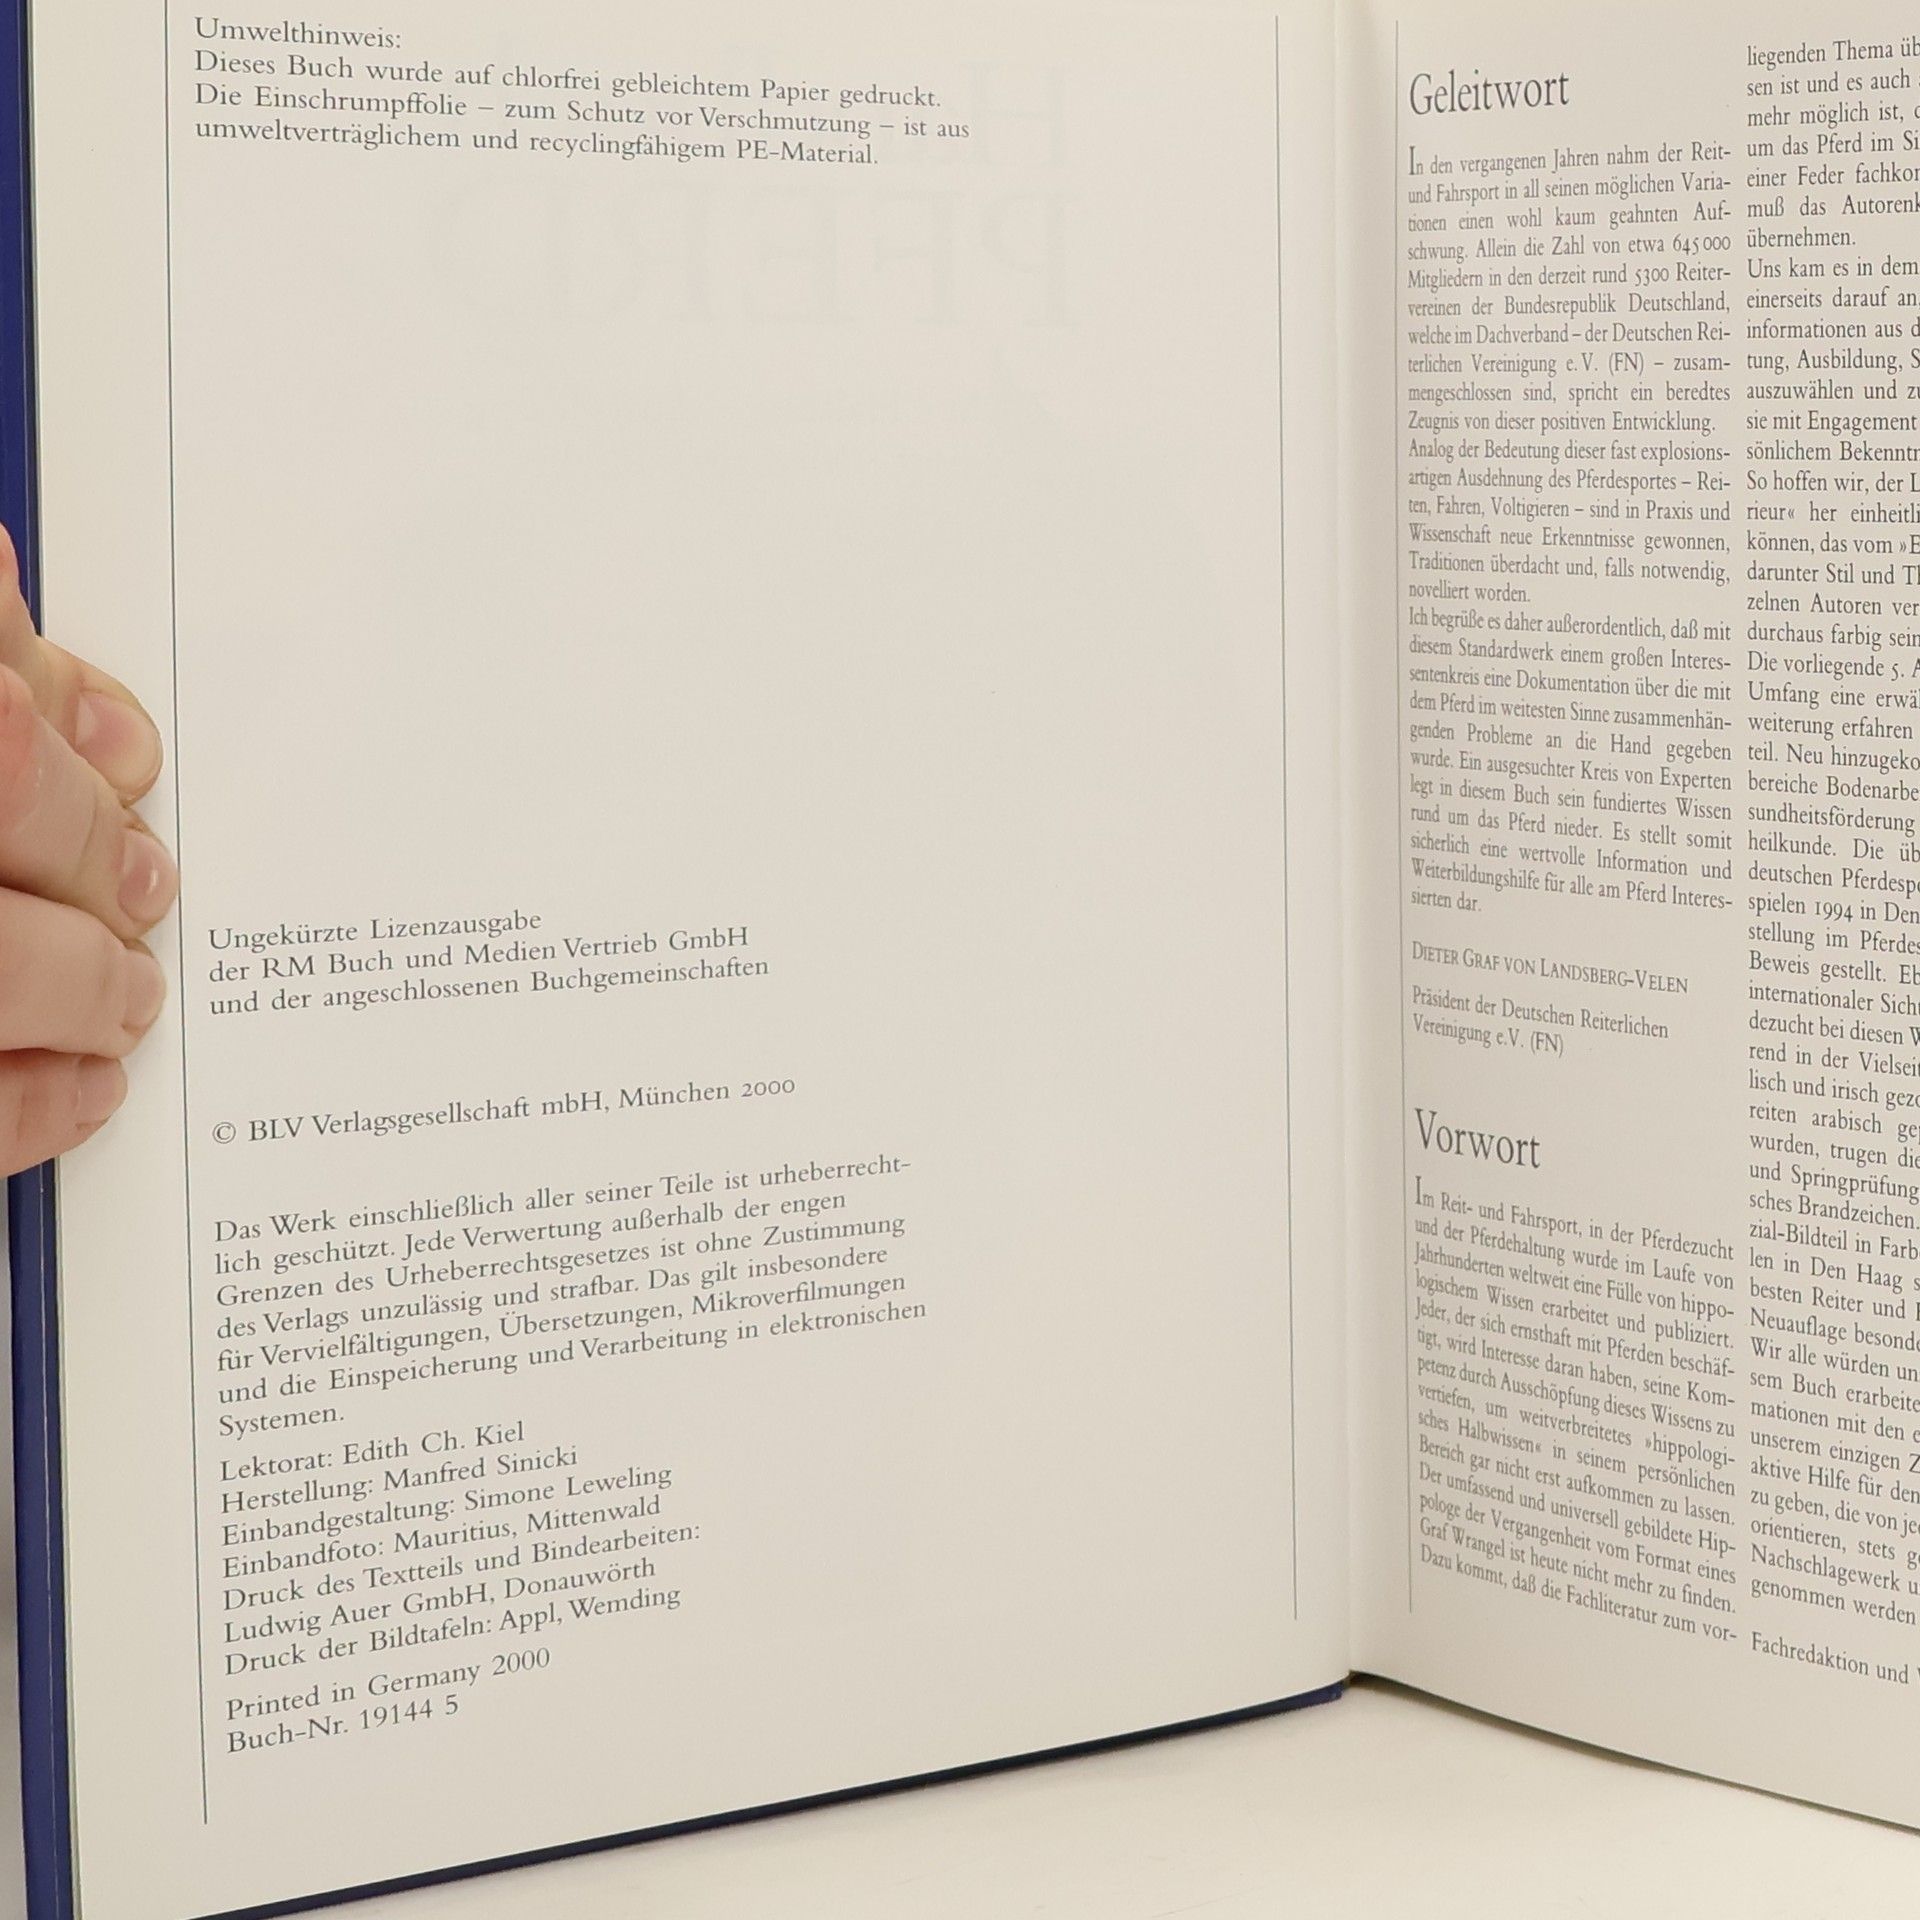 Umwelthinweis:
Dieses Buch wurde auf chlorfrei gebleichtem Papier gedruckt.
Die Einschrumpffolie – zum Schutz vor Verschmutzung – ist aus
umweltverträglichem und recyclingfähigem PE-Material.
Ungekürzte Lizenzausgabe
der RM Buch und Medien Vertrieb GmbH
und der angeschlossenen Buchgemeinschaften
© BLV Verlagsgesellschaft mbH, München 2000
Das Werk einschließlich aller seiner Teile ist urheberrecht-
lich geschützt. Jede Verwertung außerhalb der engen
Grenzen des Urheberrechtsgesetzes ist ohne Zustimmung
des Verlags unzulässig und strafbar. Das gilt insbesondere
für Vervielfältigungen, Übersetzungen, Mikroverfilmungen
und die Einspeicherung und Verarbeitung in elektronischen
Systemen.
Lektorat: Edith Ch. Kiel
Herstellung: Manfred Sinicki
Einbandgestaltung: Simone Leweling
Einbandfoto: Mauritius, Mittenwald
Druck des Textteils und Bindearbeiten:
Ludwig Auer GmbH, Donauwörth
Druck der Bildtafeln: Appl, Wemding
Printed in Germany 2000
Buch-Nr. 19144 5
Geleitwort
In den vergangenen Jahren nahm der Reit-
und Fahrsport in all seinen möglichen Varia-
tionen einen wohl kaum geahnten Auf-
schwung. Allein die Zahl von etwa 645 000
Mitgliedern in den derzeit rund 5300 Reiter-
vereinen der Bundesrepublik Deutschland,
welche im Dachverband – der Deutschen Rei-
terlichen Vereinigung e. V. (FN) – zusam-
mengeschlossen sind, spricht ein beredtes
Zeugnis von dieser positiven Entwicklung.
Analog der Bedeutung dieser fast explosions-
artigen Ausdehnung des Pferdesportes – Rei-
ten, Fahren, Voltigieren – sind in Praxis und
Wissenschaft neue Erkenntnisse gewonnen,
Traditionen überdacht und, falls notwendig,
novelliert worden.
Ich begrüße es daher außerordentlich, daß mit
diesem Standardwerk einem großen Interes-
sentenkreis eine Dokumentation über die mit
dem Pferd im weitesten Sinne zusammenhän-
genden Probleme an die Hand gegeben
wurde. Ein ausgesuchter Kreis von Experten
legt in diesem Buch sein fundiertes Wissen
rund um das Pferd nieder. Es stellt somit
sicherlich eine wertvolle Information und
Weiterbildungshilfe für alle am Pferd Interes-
sierten dar.
DIETER GRAF VON LANDSBERG-VELEN
Präsident der Deutschen Reiterlichen
Vereinigung e.V. (FN)
Vorwort
Im Reit- und Fahrsport, in der Pferdezucht
und der Pferdehaltung wurde im Laufe von
Jahrhunderten weltweit eine Fülle von hippo-
logischem Wissen erarbeitet und publiziert.
Jeder, der sich ernsthaft mit Pferden beschäf-
tigt, wird Interesse daran haben, seine Kom-
petenz durch Ausschöpfung dieses Wissens zu
vertiefen, um weitverbreitetes »hippologi-
sches Halbwissen« in seinem persönlichen
Bereich gar nicht erst aufkommen zu lassen.
Der umfassend und universell gebildete Hip-
pologe der Vergangenheit vom Format eines
Graf Wrangel ist heute nicht mehr zu finden.
Dazu kommt, daß die Fachliteratur zum vor-
liegenden Thema üb
sen ist und es auch
mehr möglich ist,
um das Pferd im Si
einer Feder fachkor
muß das Autorenk
übernehmen.
Uns kam es in dem
einerseits darauf an,
informationen aus d
tung, Ausbildung, S
auszuwählen und zu
sie mit Engagement
sönlichem Bekenntn
So hoffen wir, der L
rieur« her einheitli
können, das vom »E
darunter Stil und Th
zelnen Autoren ver
durchaus farbig sein
Die vorliegende 5. A
Umfang eine erwäh
weiterung erfahren
teil. Neu hinzugeko
bereiche Bodenarbe
sundheitsförderung
heilkunde. Die üb
deutschen Pferdespo
spielen 1994 in Den
stellung im Pferdes
Beweis gestellt. Eb
internationaler Sicht
dezucht bei diesen W
rend in der Vielseit
lisch und irisch gezo
reiten arabisch gep
wurden, trugen die
und Springprüfung
sches Brandzeichen.
zial-Bildteil in Farb
len in Den Haag s
besten Reiter und
Neuauflage besonde
Wir alle würden un
sem Buch erarbeite
mationen mit den e
unserem einzigen Z
aktive Hilfe für den
zu geben, die von je
orientieren, stets g
Nachschlagewerk u
genommen werden
Fachredaktion und